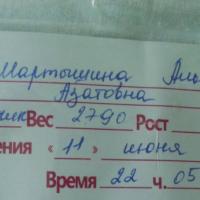 Мартышина Аль
Азатовна
Вес 2790 Рост
ения « 11 » июня
Время 22 ч. 05